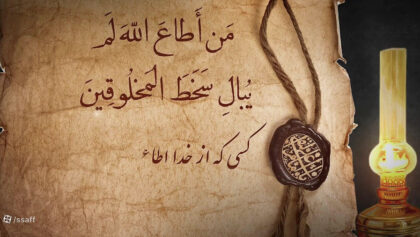 مَن أَطاعَ اللهَ لَم
یُبالِ سَخَطَ المَخلُوقِینَ
کسی که از خدا اطاء
/ssaff